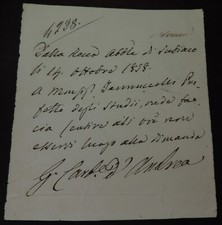 4298.
Dalla Rocca Abb.le di Subiaco
li 14. Ottobre 1858.
A Monsig.r Jannuccelli Pre-
fetto degli Studii, onde fac-
cia sentire all' ora non
esservi luogo alla dimanda
G. Card.e D' Andrea